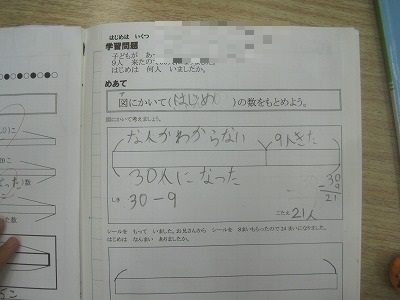 はじめは いくつ
学習問題
子どもが あ
9人 来たので
はじめは 何人 いましたか。
めあて
図にかいて(はじめ)の数をもとめよう。
図にかいて考えましょう。
な人かわからない 9人きた
30人になった
しき 30-9
30
-9
21
こたえ 21人
シールを もって いました。お兄さんから シールを 8まいもらったので24まいになりました。
はじめは なんまい ありましたか。